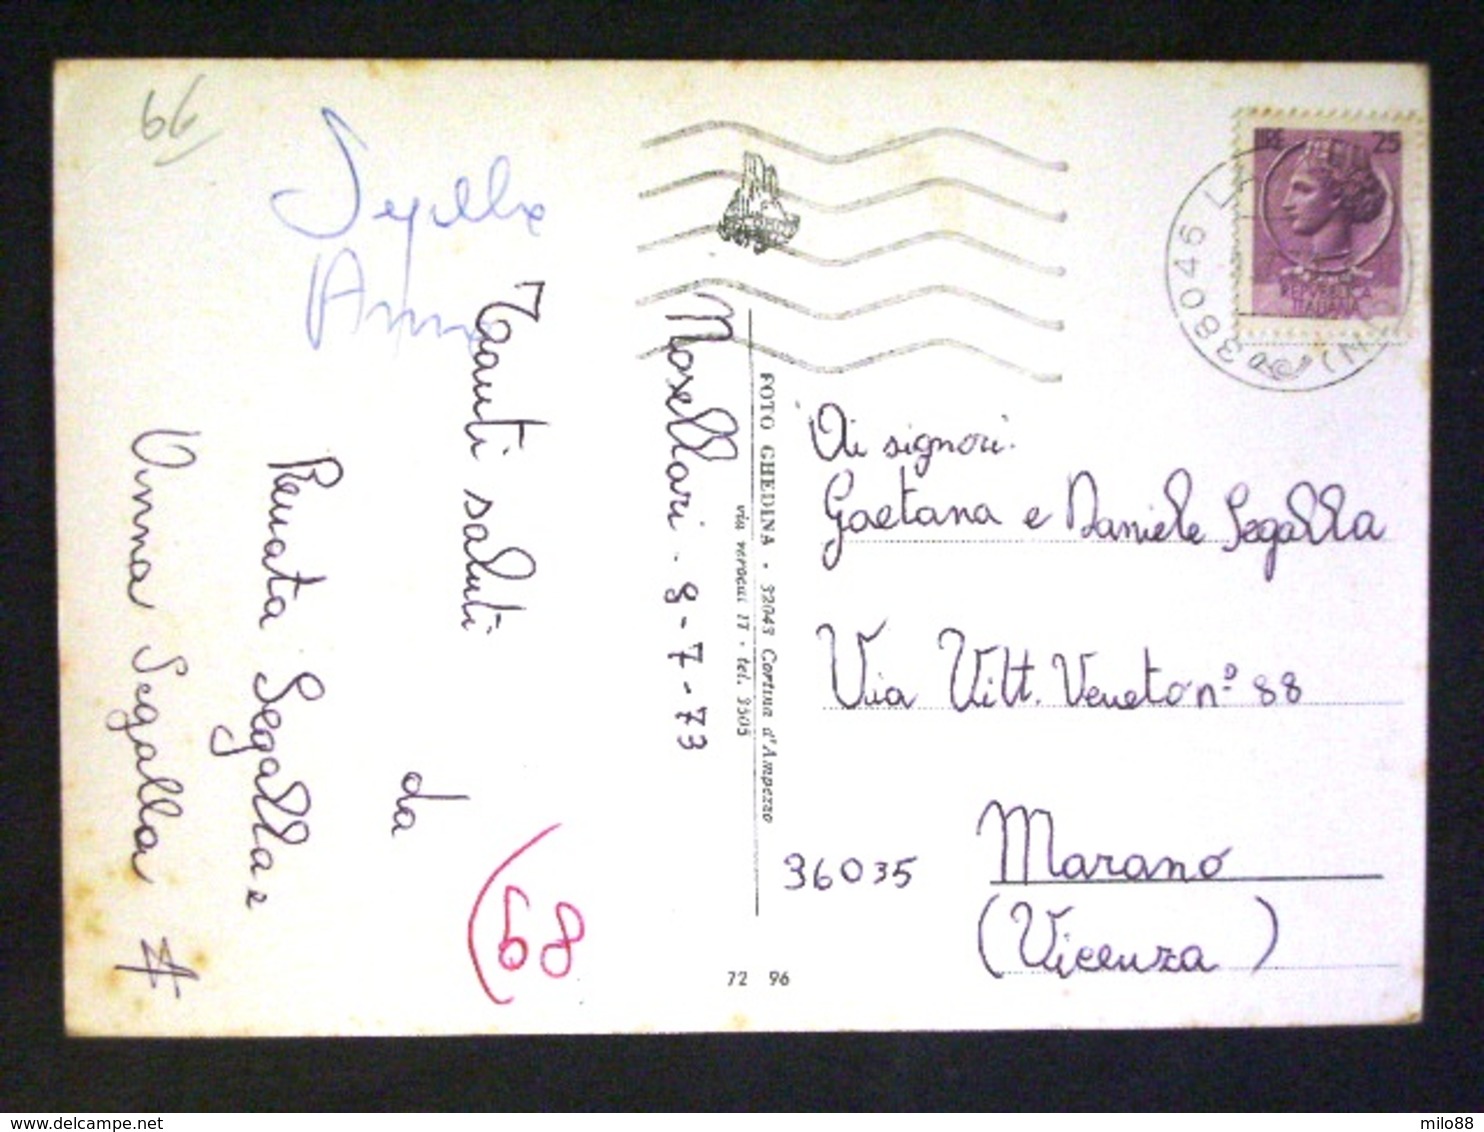 66
Segalla
Anna
Moscellari . 8-7-73
Tanti saluti
da
Renata Segalla e
Anna Segalla
(68
FOTO GHEDINA - 32043 Cortina d'Ampezzo
via verocai 11 - tel. 3505
72 96
LIRE 25
REPUBBLICA
ITALIANA
38046
(TN)
Ai signori.
Gaetana e Daniele Segalla
Via Vitt. Veneto n° 88
36035 Marano
(Vicenza)
milo88